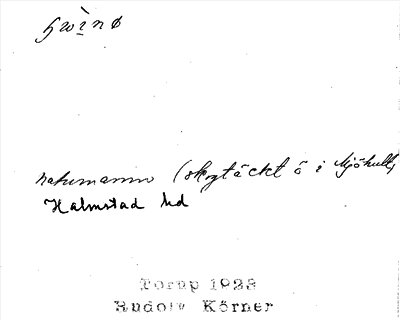 hwìnø
naturnamn (skogtäckt ö i Mjöhult,
Halmstad hd
Torup 1923
Rudolf Körner